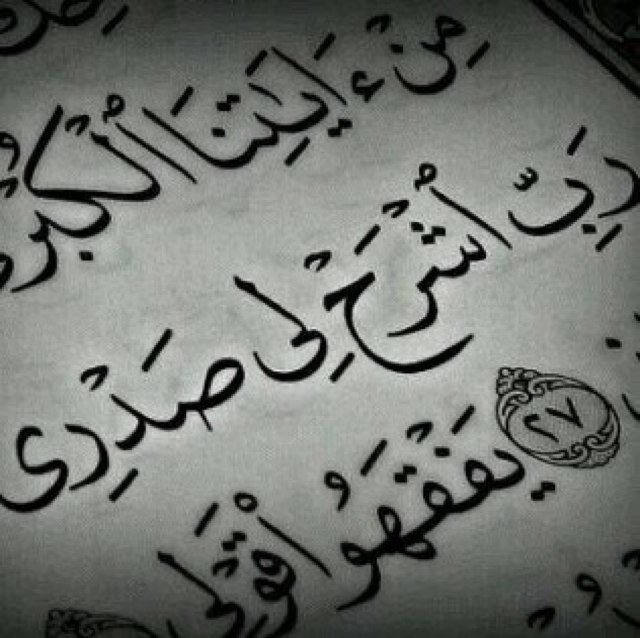 مِنْ ءَايَٰتِنَا ٱلْكُبْرَ
رَبِّ ٱشْرَحْ لِى صَدْرِى
۝٢٧ يَفْقَهُوا۟ قَوْلِى